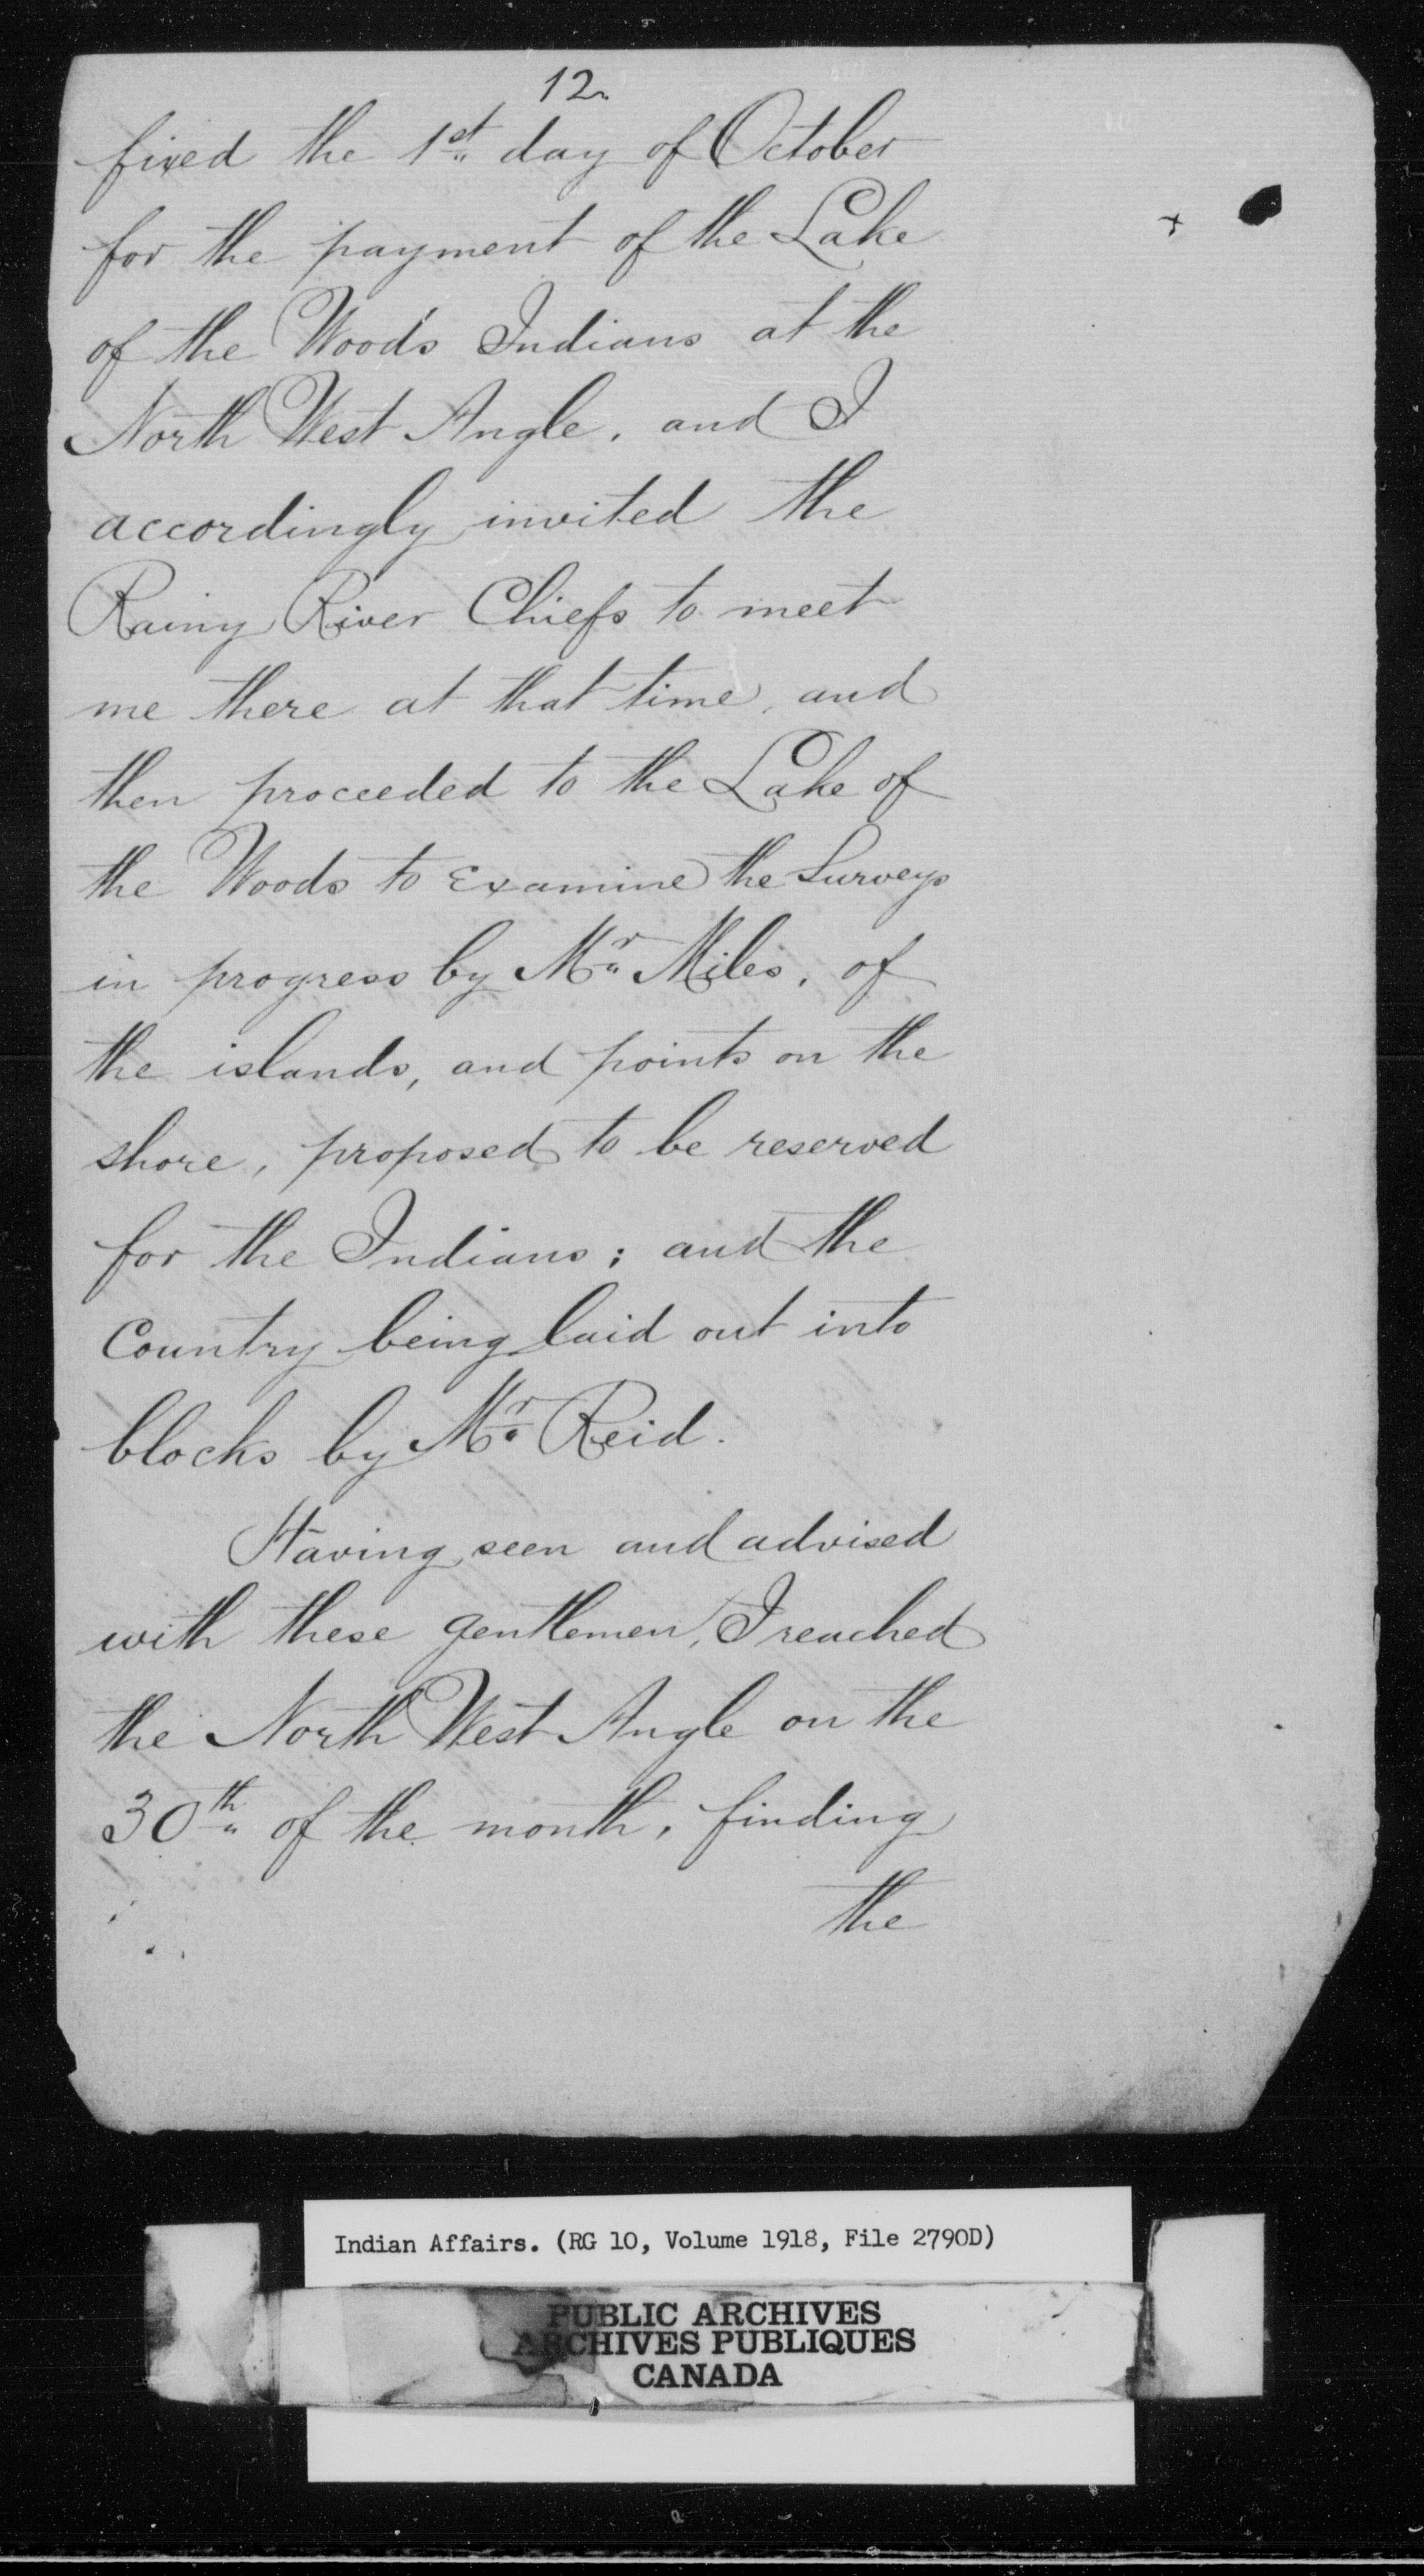 12
fixed the 1st day of October
for the payment of the Lake
of the Wood's Indians at the
North West Angle, and I
accordingly invited the
Rainy River Chiefs to meet
me there at that time, and
then proceeded to the Lake of
the Woods to examine the Surveys
in progress by Mr. Miles, of
the islands, and points on the
shore, proposed to be reserved
for the Indians; and the
Country being laid out into
blocks by Mr. Reid.
Having seen and advised
with these gentlemen, I reached
the North West Angle on the
30th of the month, finding
the
Indian Affairs. (RG 10, Volume 1918, File 2790D)
PUBLIC ARCHIVES
ARCHIVES PUBLIQUES
CANADA